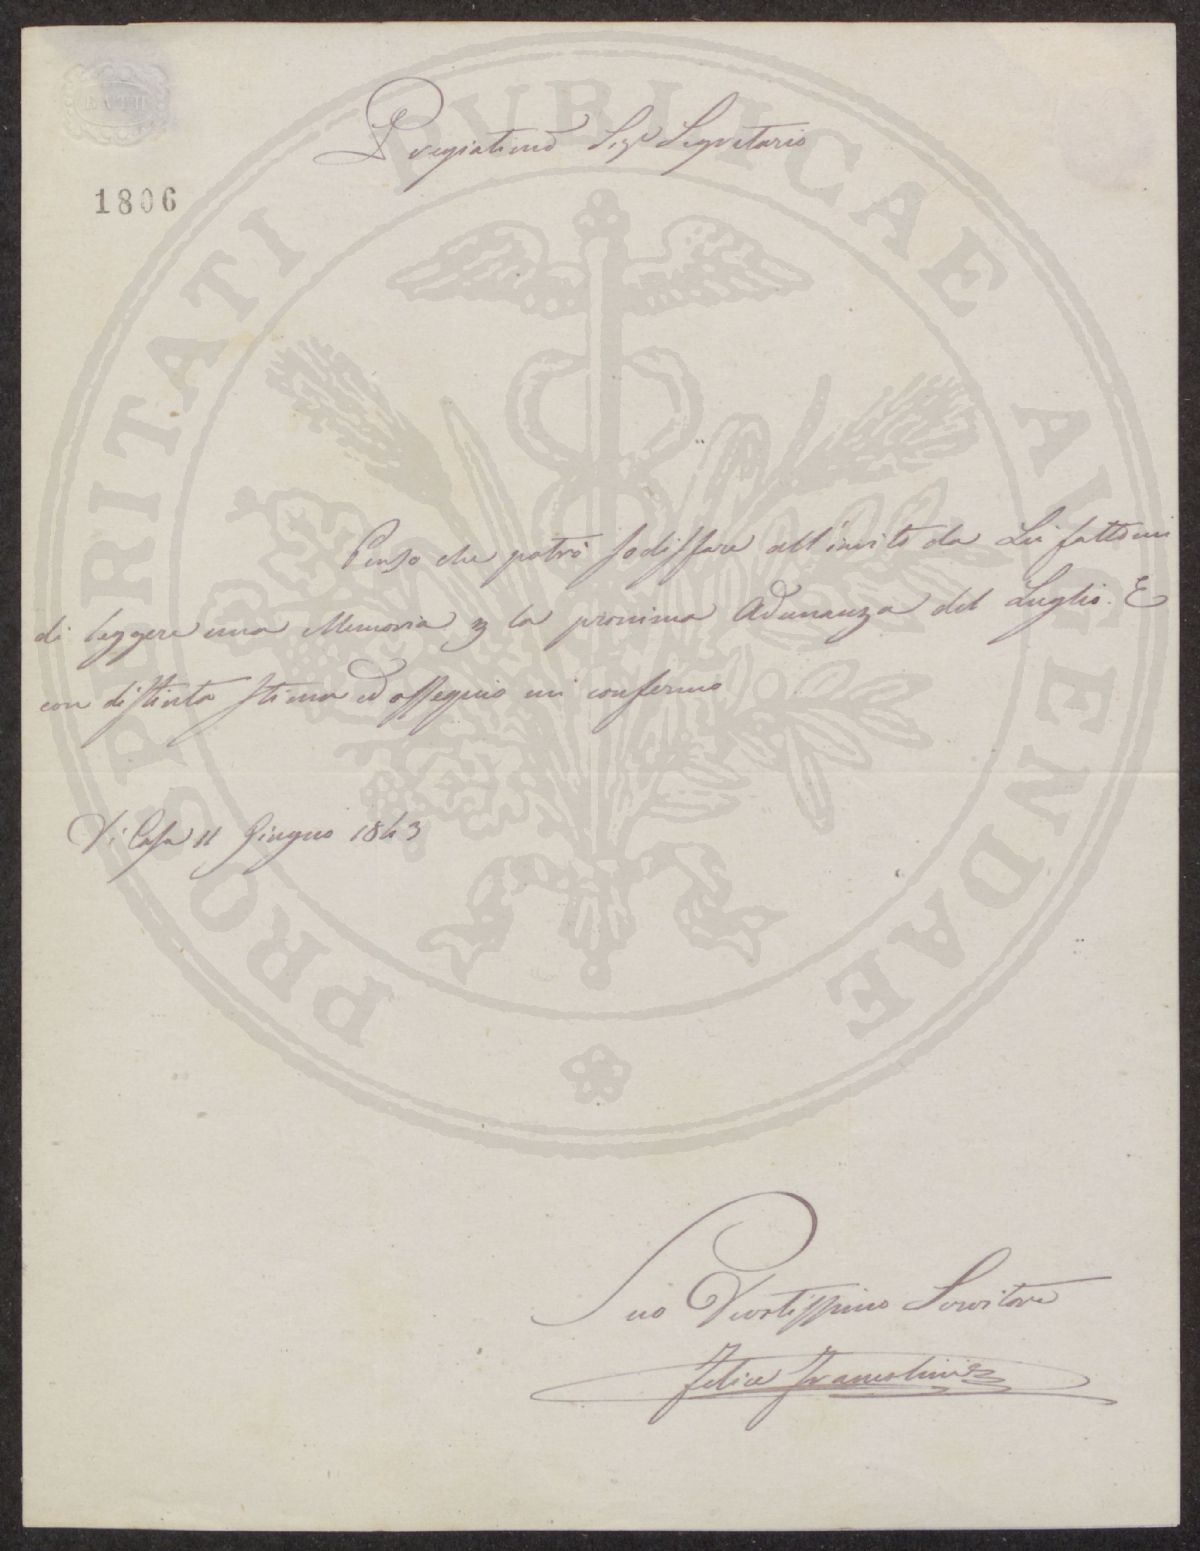 BATH
1806
Pregiatimo Sigr Segretario
Penso che potrò sodisfare all'invito da Lei fattomi
di leggere una Memoria p la prossima Adunanza del Luglio. E
con distinta stima ed ossequio mi confermo
Di Casa 11 Giugno 1843
Suo Devotissimo Servitore
Felice Francolini
PROSPERITATI PVBLICAE AVGENDAE